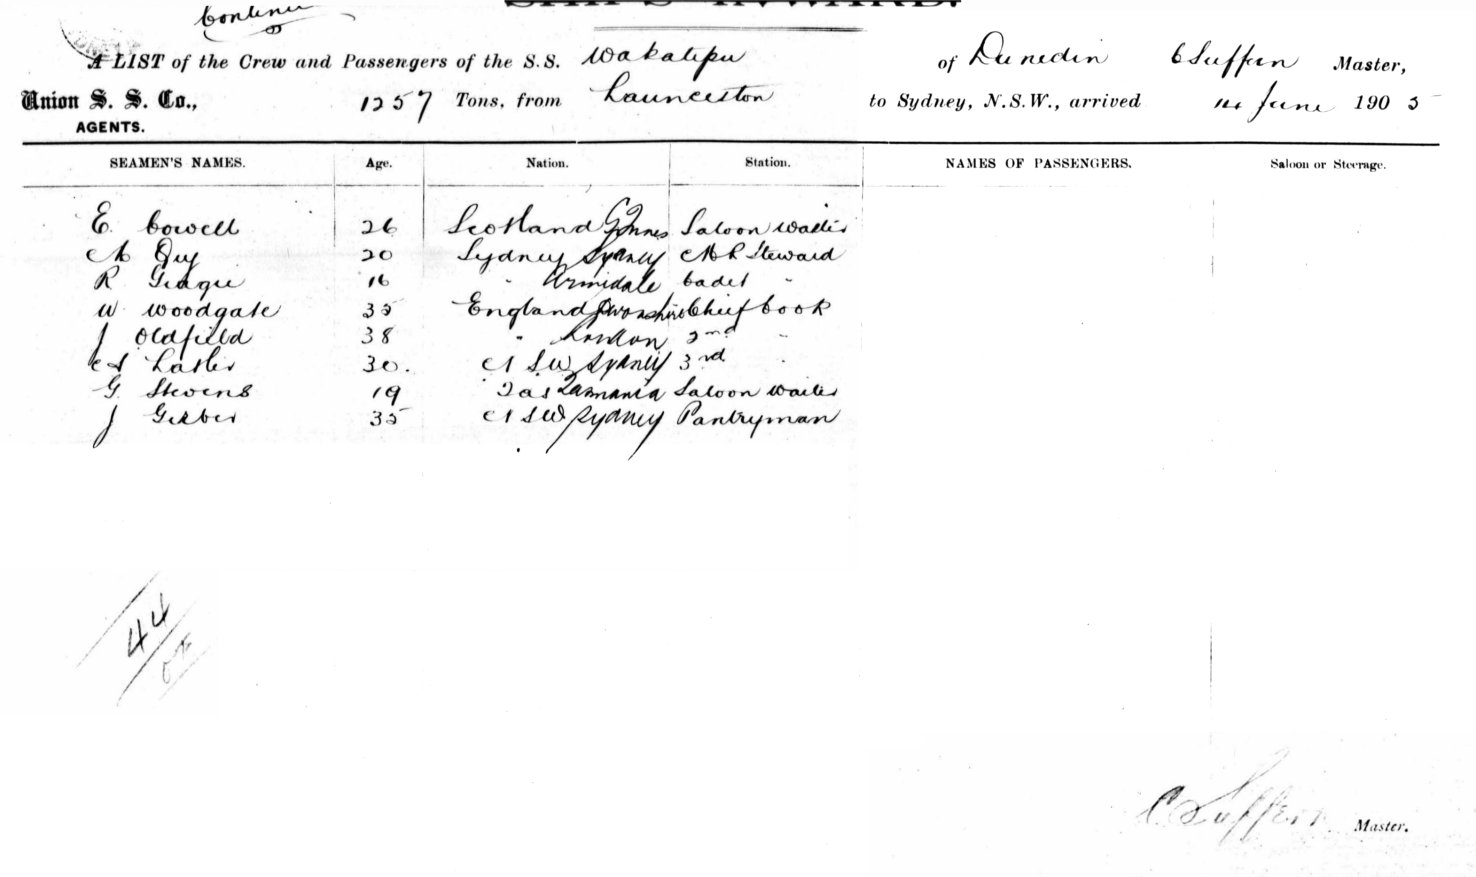 SHIPS INWARD.
A LIST of the Crew and Passengers of the S.S. Wakatipu of Dunedin C Suffern Master,
Union S. S. Co., 1257 Tons, from Launceston to Sydney, N.S.W., arrived 14 June 1905
AGENTS.
SEAMEN'S NAMES. Age. Nation. Station. NAMES OF PASSENGERS. Saloon or Steerage.
E. Cowell 26 Scotland Saloon Waiter
20 Sydney Sydney Steward
R 16 " Armidale Cadet "
W Woodgate 35 England Devonshire Chief Cook
J Oldfield 38 " London 2nd "
30. N S.W Sydney 3rd "
G. Stevens 19 Tas Tasmania Saloon Waiter
J Gerber 35 N SW Sydney Pantryman
44
C Suffern Master.